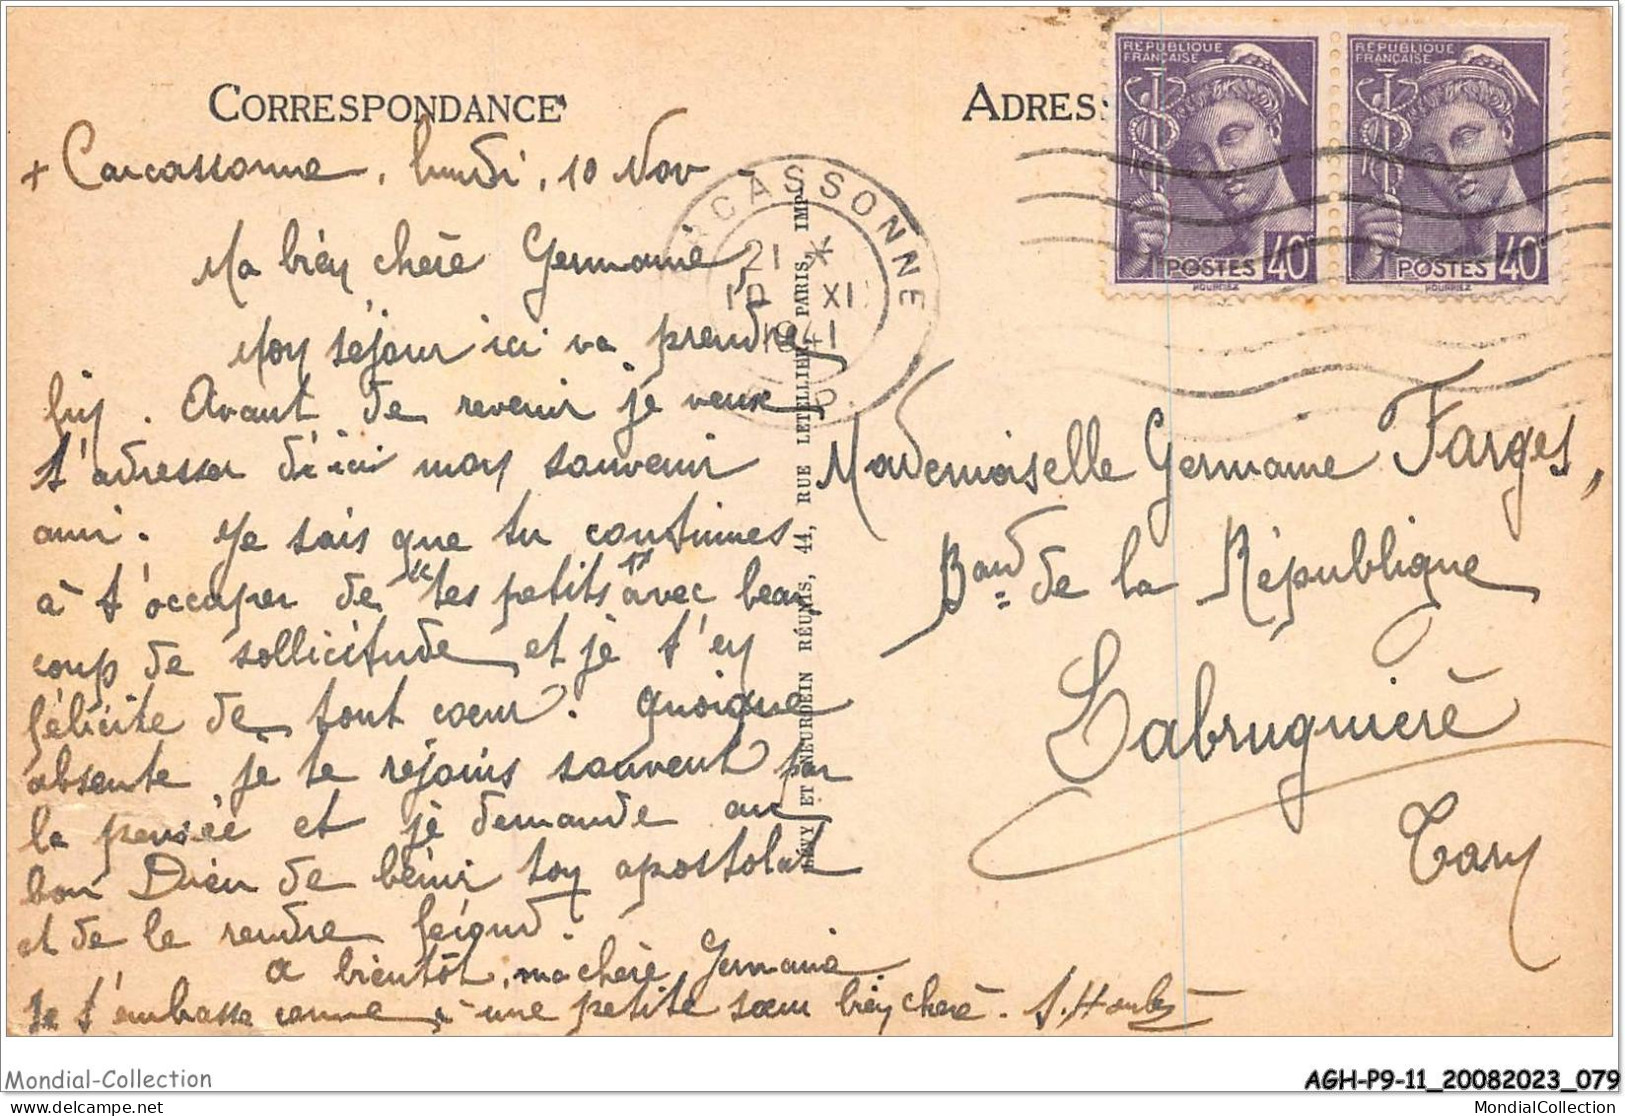 CORRESPONDANCE
ADRES
RÉPUBLIQUE FRANÇAISE
POSTES 40
RÉPUBLIQUE FRANÇAISE
POSTES 40
CARCASSONNE
21 *
10 XI
1941
+ Carcassonne, lundi, 10 Nov
Ma bien chère Germaine,
Mon séjour ici va prendre
fin. Avant de revenir je veux
t'adresser d'ici mon souvenir
ami. Je sais que tu continues
à t'occuper de "tes petits" avec beau
coup de sollicitude et je t'en
félicite de tout cœur. Quoique
absente je te rejoins souvent par
la pensée et je demande au
bon Dieu de bénir ton apostolat
et de le rendre fécond.
A bientôt, ma chère Germaine
Je t'embrasse comme une petite sœur bien chère.
LÉVY ET NEURDEIN RÉUNIS, 44, RUE LETELLIER, PARIS, IMP
Mademoiselle Germaine Farges,
Bard de la République
Labruguière
Tarn
Mondial-Collection
AGH-P9-11_20082023_079
delcampe.net
MondialCollection